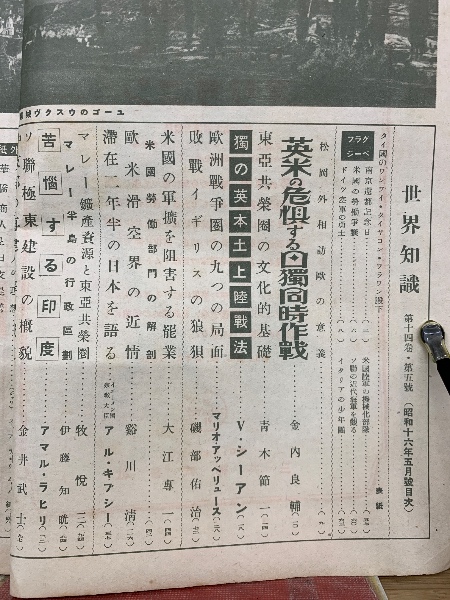 世界知識 第十四卷・第五號(昭和十六年五月號目次)
タイ國のワンワイ・タイヤコン・ワラワン殿下
表紙
グラフページ
南京還都記念日
米國の勞働爭議
ドイツ空軍の勇士
米國陸軍の機械化部隊
ソ聯の近代海軍を觀る
イタリアの少年團
松岡外相訪歐の意義 金内良輔
英米の危惧する日獨同時作戰
東亞共榮圈の文化的基礎 青木節一
獨の英本土上陸戰法 V・シーアン
歐洲戰爭圈の九つの局面 マリオ・アッペリュース
敗戰イギリスの狼狽 磯部佑治
米國の軍擴を阻害する罷業 大江專一
米國勞働部門の解剖
歐米滑空界の近情 谿川淸
滯在二年半の日本を語る アル・キブシー
マレー鑛產資源と東亞共榮圈 牧悅三
マレー半島の行政區劃 伊藤知晄
苦惱する印度 アマル・ラヒリ
ソ聯極東建設の概貌 金井武士
ユーゴのウスクヴ城